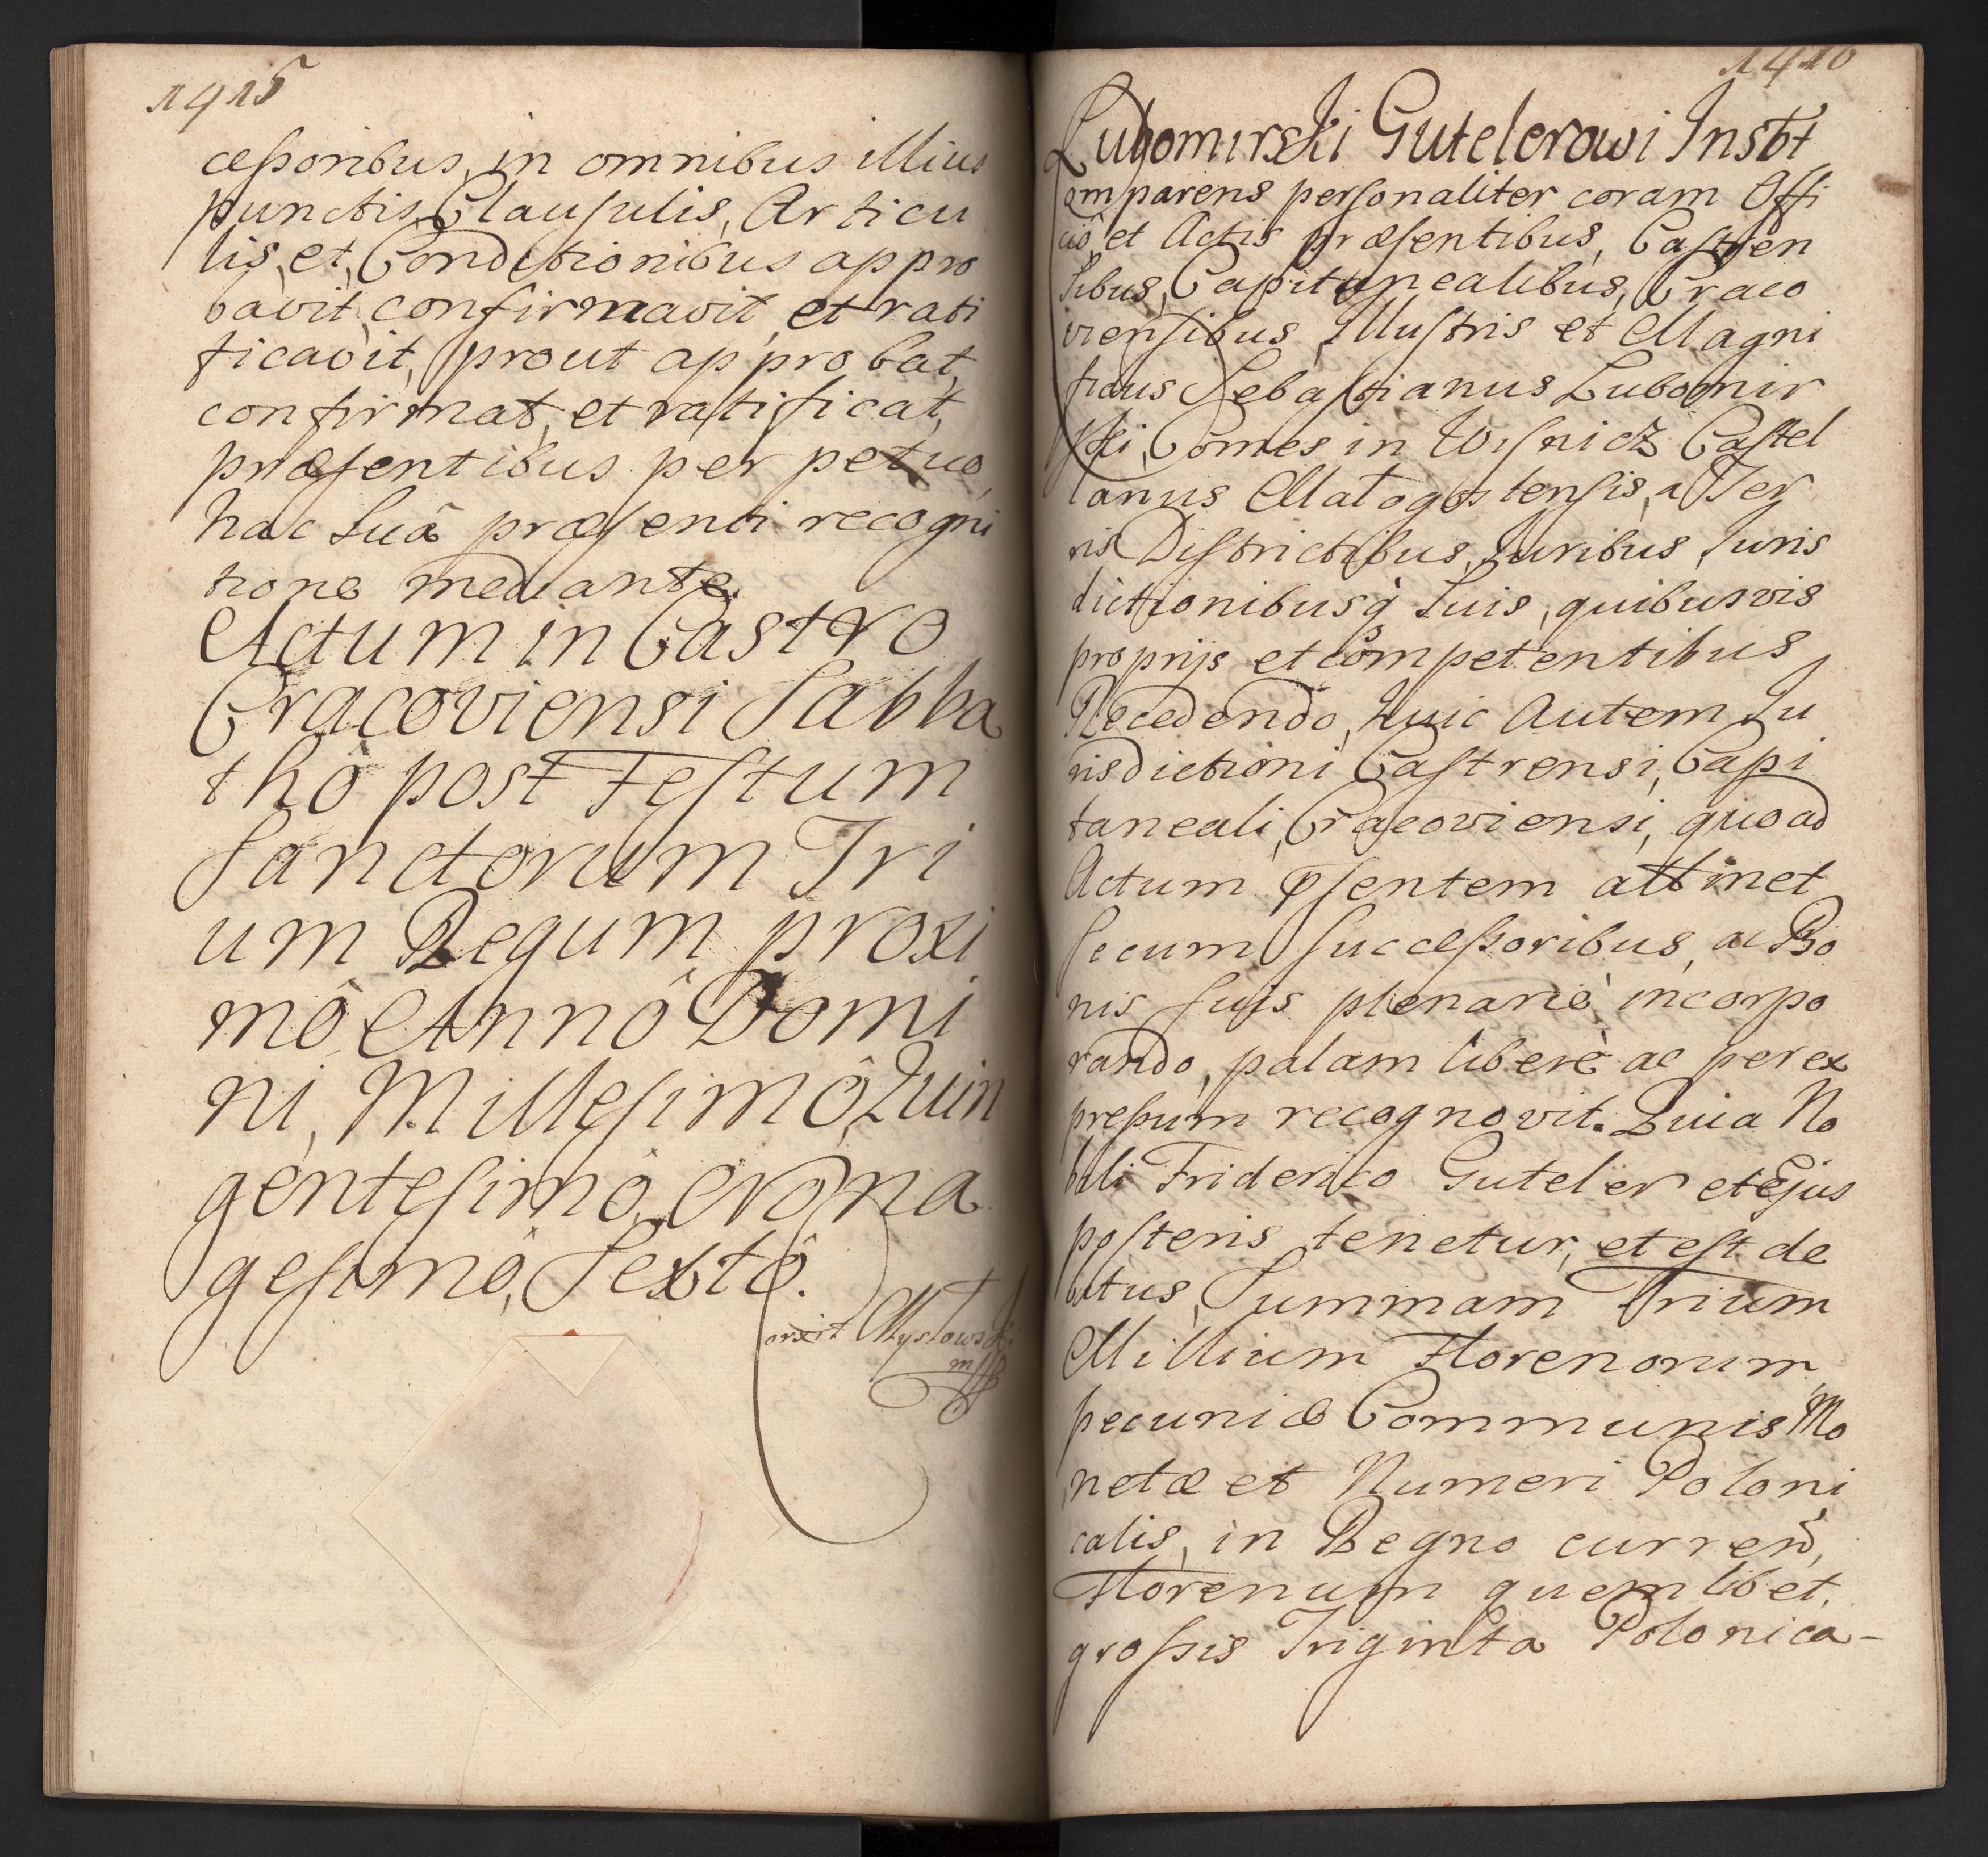 1415
cæßoribus, in omnibus illius
punctis, Clauſulis, Articu
lis, et Conditionibus appro
bavit, confirmavit, et rati
ficavit, prout approbat,
confirmat, et ratificat,
præſentibus perpetuo,
hac Suâ præſenti recogni
tione mediante.
Actum in Castro
Cracoviensi Sabba
thô post Feſtum
Sanctorum Tri
um Regum proxi
mô Annô Domi
ni, Milleſimô, Quin
genteſimô, Nona
geſimô, Sextô.
1416
Lubomirski Gutelerowi Inscbt
Comparens perſonaliter coram Offi
ciô et Actis præſentibus, Caſtren
ſibus, Capitanealibus, Craco
vienſibus, Illuſtris et Magni
ficus Sebaſtianus Lubomir
ſki, Comes in Wiſnicz Caſtel
lanus Malogostenſis, a Ter
ris Diſtrictibus, Juribus, Juris
dictionibusq̀ Suis, quibusvis
proprijs et competentibus
Recedendo, huic Autem Ju
risdictioni Caſtrensi, Capi
taneali, Cracoviensi, quoad
Actum pſentem attinet
Secum ſuccæßoribus, ac Bo
nis ſuis plenariè incorpo
rando, palam liberè ac perex
preßum recognovit. Quia No
bili Friderico Guteler et Ejus
poſteris tenetur, et eſt de
bitus, Summam Trium
Millium Florenorum
pecuniæ Communis Mo
netæ et Numeri Poloni
calis, in Regno curren̄,
Florenum quemlibet,
groſsis Triginta Polonica-